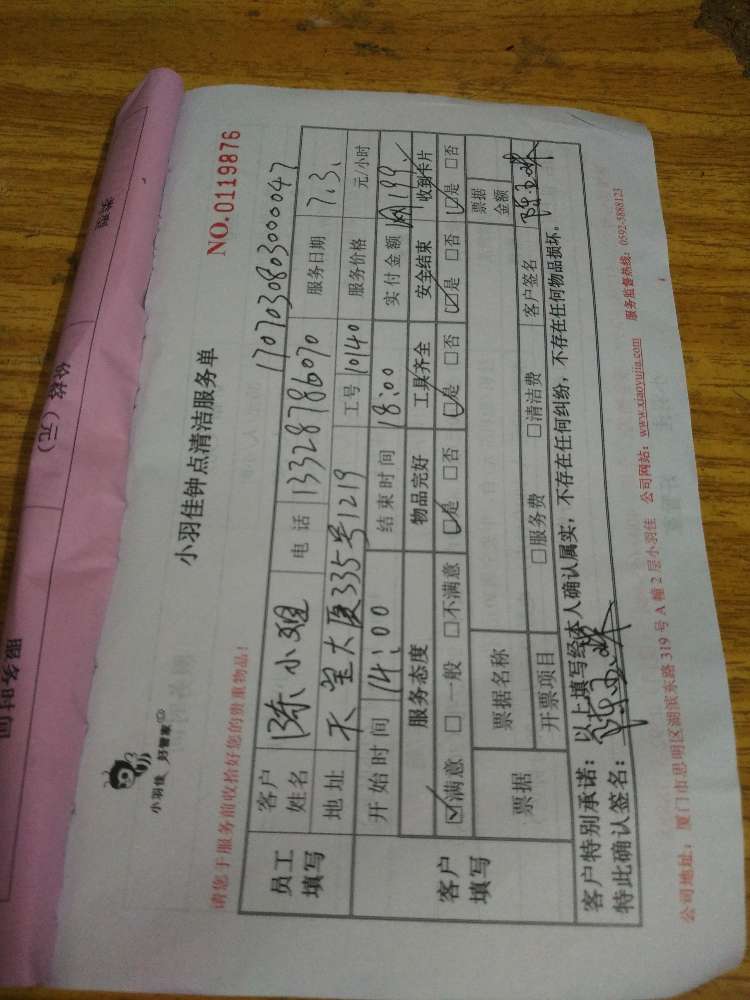 价格（元）
服务时间
小羽佳 好管家
小羽佳钟点清洁服务单
NO.0119876
请您于服务前收拾好您的贵重物品！
1707030803000047
员工填写 客户姓名 陈小姐 电话 13328786070 服务日期 7.3.
地址 天宝大厦335号1219 工号 10140 服务价格 元/小时
开始时间 14:00 结束时间 18:00 实付金额 199
客户填写 服务态度 物品完好 工具齐全 安全结束 收到卡片
☑满意 □一般 □不满意 ☑是 □否 ☑是 □否 ☑是 □否 ☑是 □否
票据 票据名称 票据金额
开票项目 □服务费 □清洁费 客户签名
客户特别承诺：以上填写经本人确认属实，不存在任何纠纷，不存在任何物品损坏。
特此确认签名：
公司地址：厦门市思明区湖滨东路 319 号 A 幢 2 层小羽佳 公司网站：www.xiaoyujia.com 服务监督热线：0592-5888123